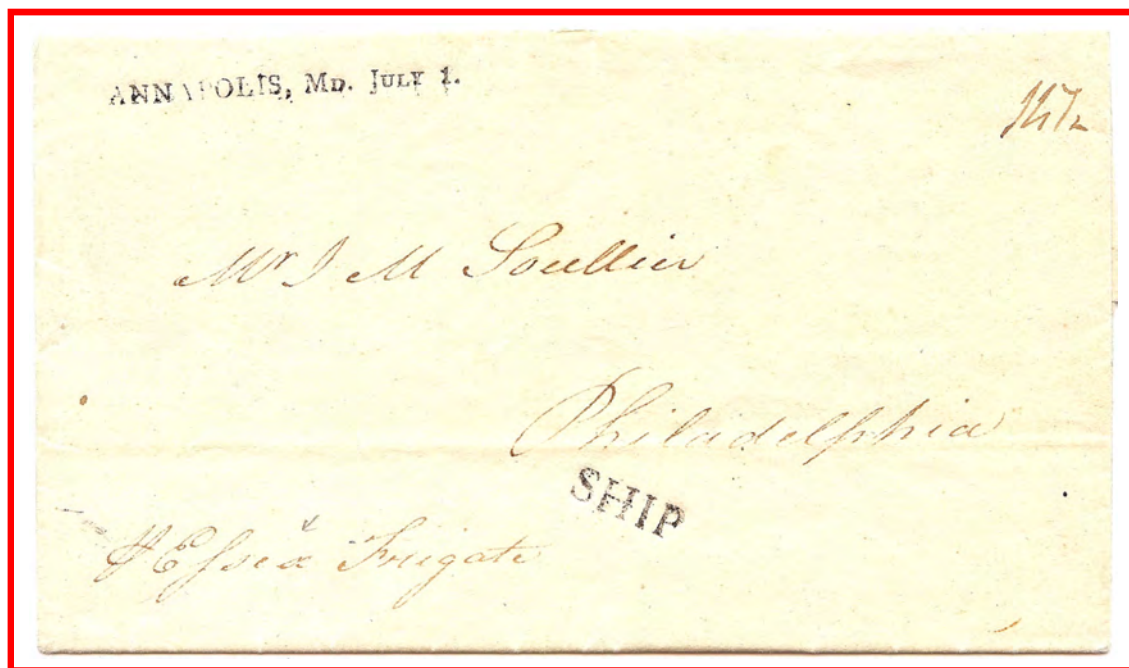 ANNAPOLIS, MD. JULY 1.
14½
Mr J M Soullier
Philadelphia
SHIP
⅌ Eſsex Frigate